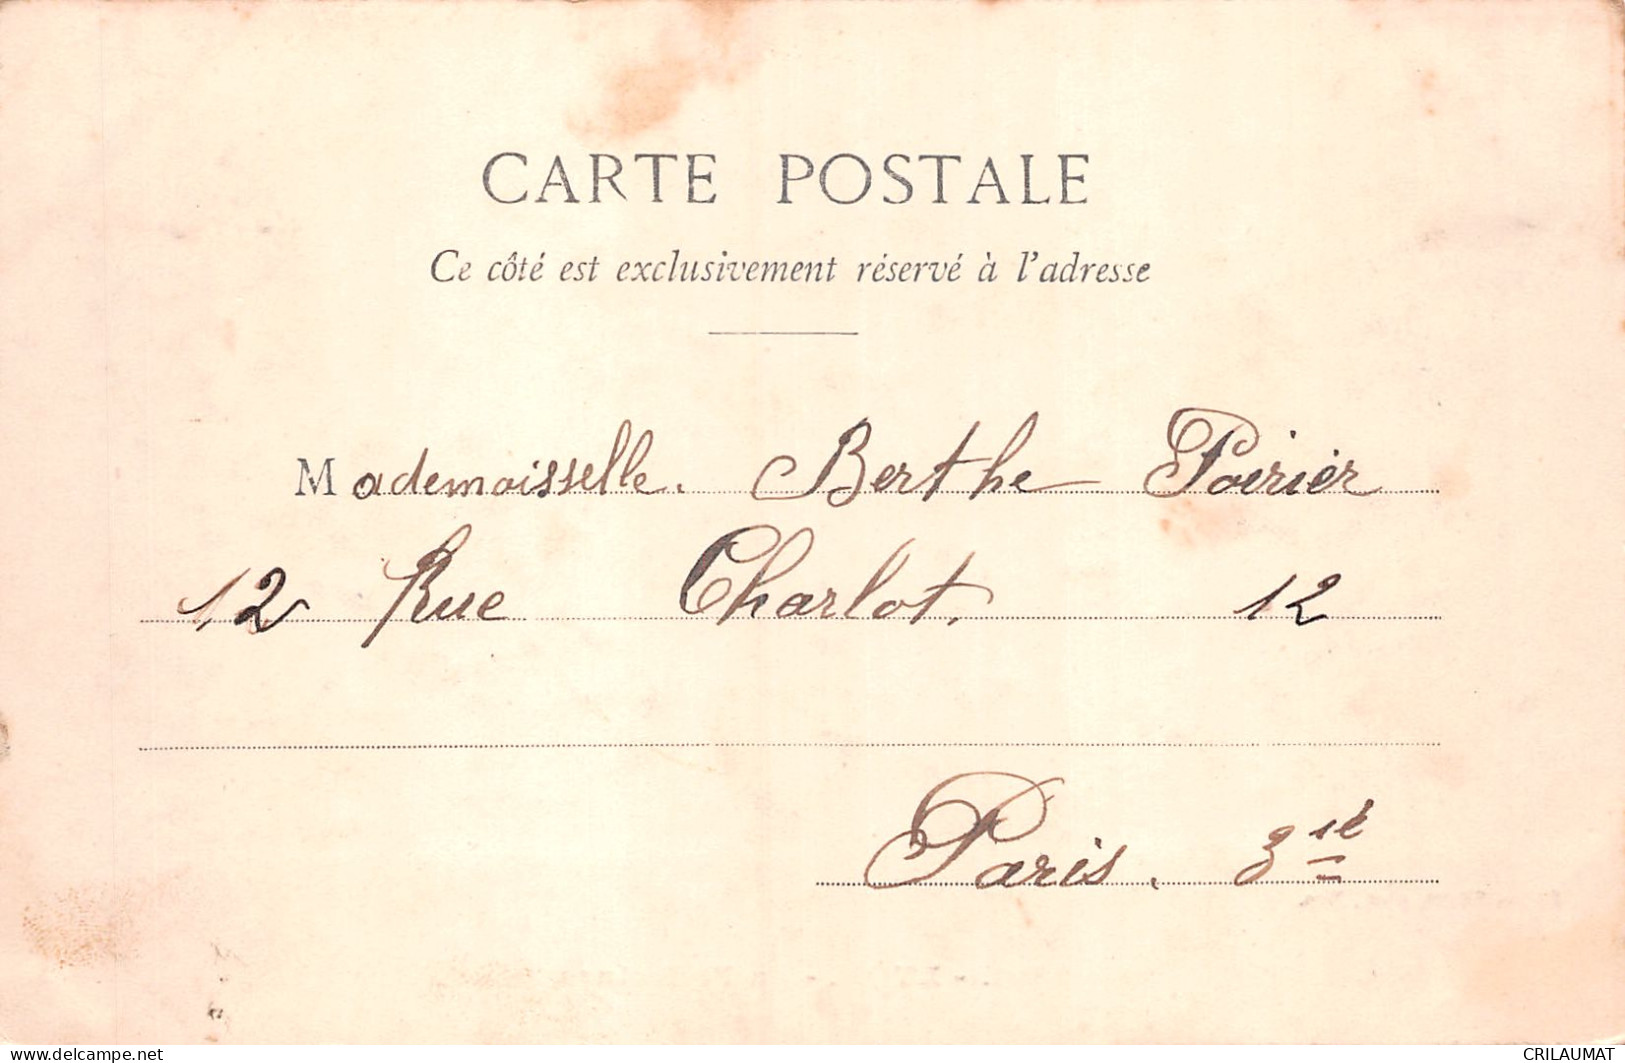 CARTE POSTALE
Ce côté est exclusivement réservé à l'adresse
Mademoisselle. Berthe Poirier
12 Rue Charlot. 12
Paris. 3
www.delcampe.net
CRILAUMAT